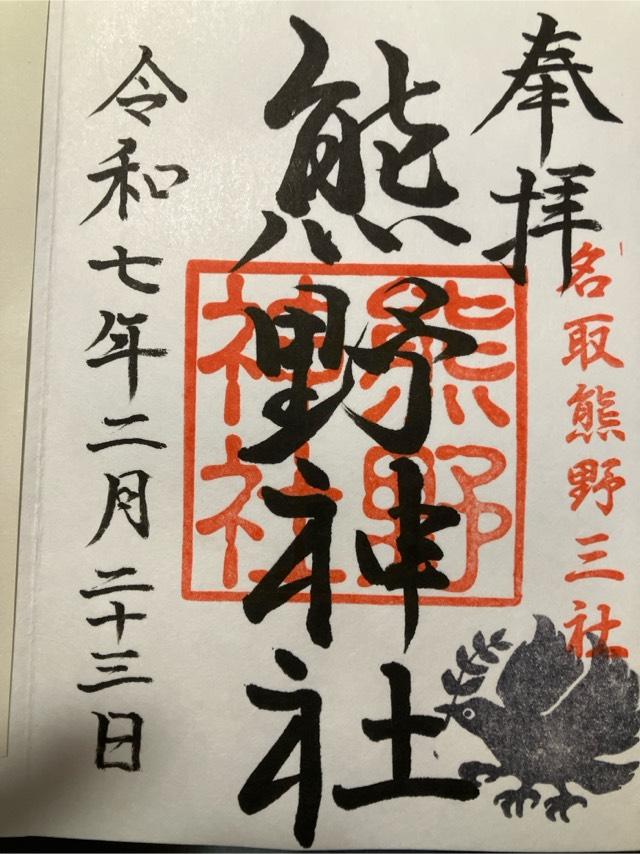 奉拝
名取熊野三社
熊野神社
熊野神社
令和七年二月二十三日